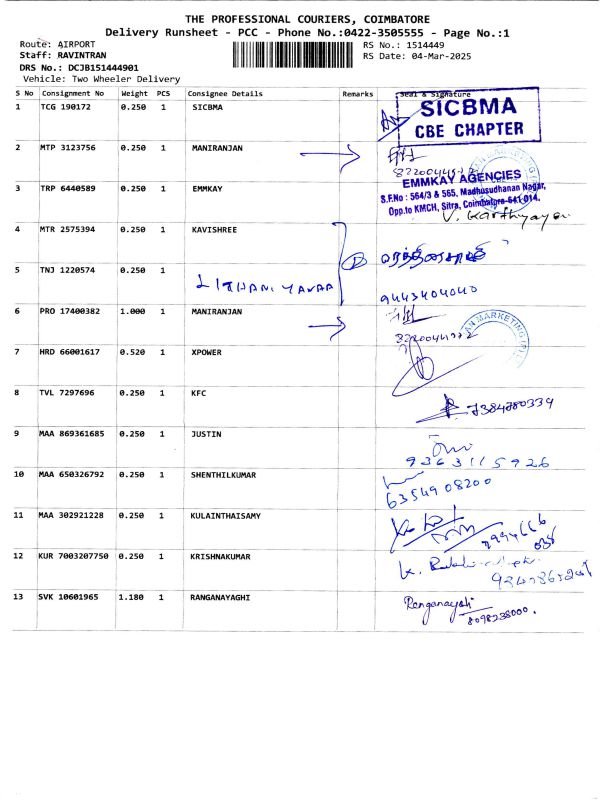 THE PROFESSIONAL COURIERS, COIMBATORE
Delivery Runsheet - PCC - Phone No.:0422-3505555 - Page No.:1
Route: AIRPORT
Staff: RAVINTRAN
DRS No.: DCJB151444901
Vehicle: Two Wheeler Delivery
RS No.: 1514449
RS Date: 04-Mar-2025
S No Consignment No Weight PCS Consignee Details Remarks Seal & Signature
1 TCG 190172 0.250 1 SICBMA
SICBMA
CBE CHAPTER
2 MTP 3123756 0.250 1 MANIRANJAN
3 TRP 6440589 0.250 1 EMMKAY
EMMKAY AGENCIES
S.F.No : 564/3 & 565, Madhusudhanan Nagar,
Opp.to KMCH, Sitra, Coimbatore-641 014.
V. Karthyayeni
4 MTR 2575394 0.250 1 KAVISHREE
5 TNJ 1220574 0.250 1
9443404040
6 PRO 17400382 1.000 1 MANIRANJAN
AN MARKETING (P)
7 HRD 66001617 0.520 1 XPOWER
8 TVL 7297696 0.250 1 KFC
9 MAA 869361685 0.250 1 JUSTIN
9363115926
10 MAA 650326792 0.250 1 SHENTHILKUMAR
6354908200
11 MAA 302921228 0.250 1 KULAINTHAISAMY
12 KUR 7003207750 0.250 1 KRISHNAKUMAR
13 SVK 10601965 1.180 1 RANGANAYAGHI
Ranganayaki
8098238000.